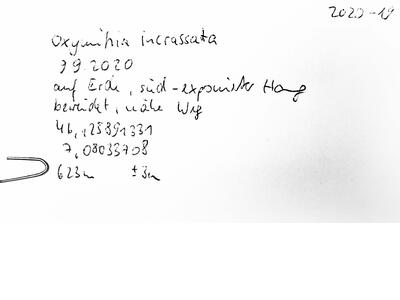 2020-19
Oxymitra incrassata
3 9.2020
auf Erde, süd-exponierter Hang
beweidet, nähe Weg
46,128891331
7,08033708
623m ±3m